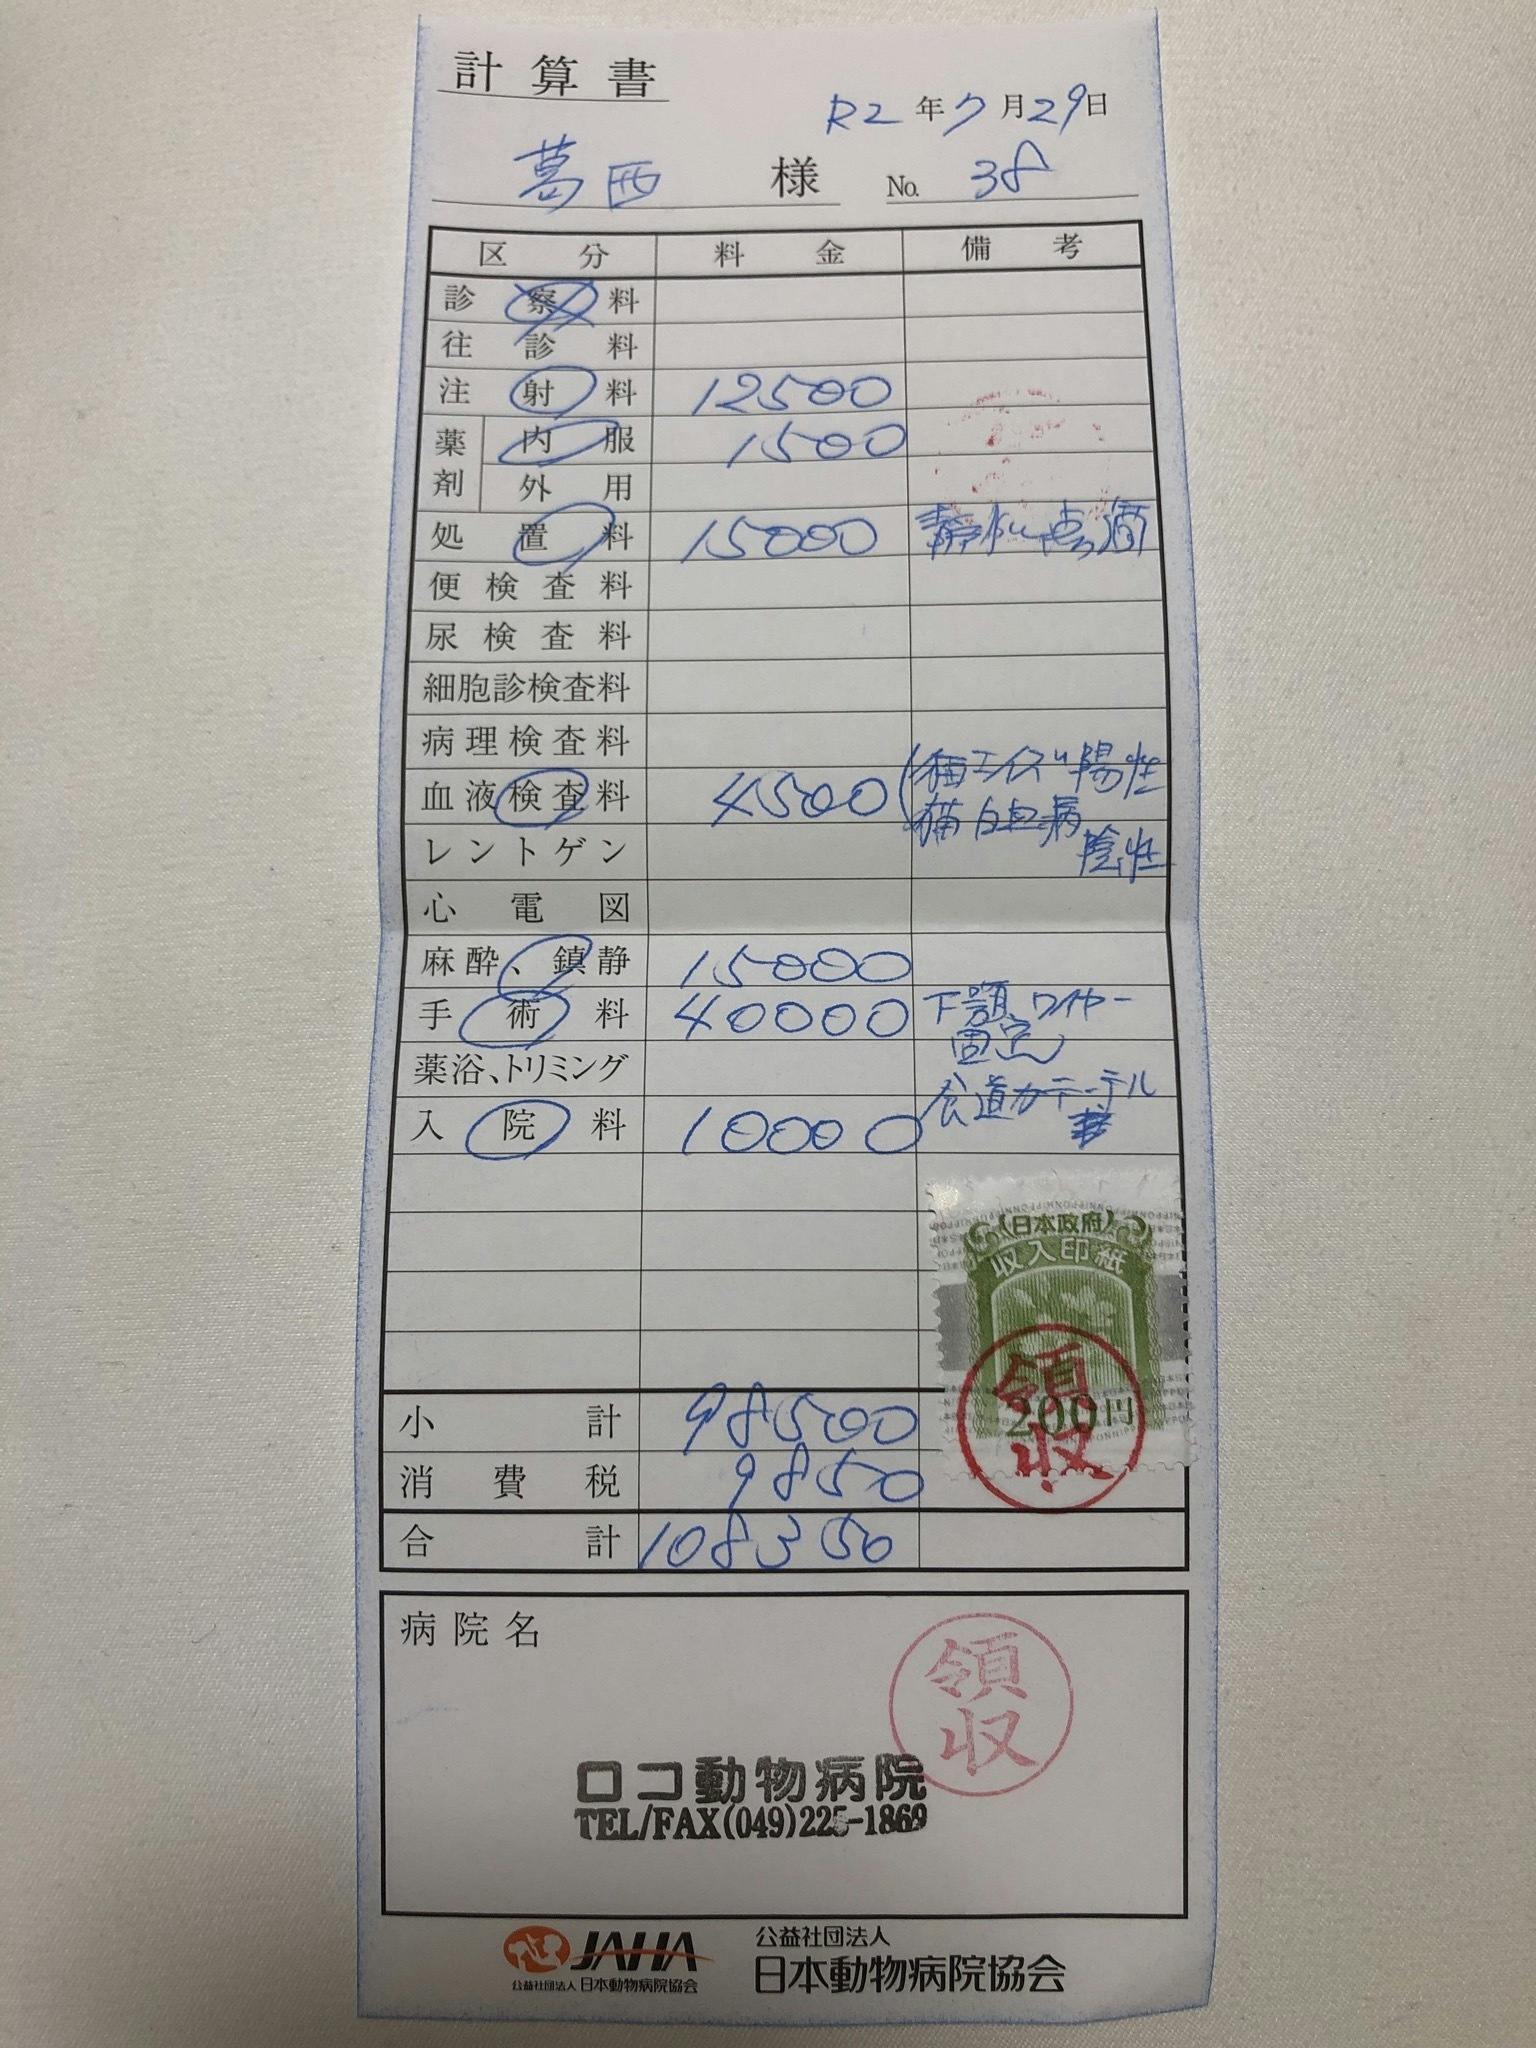 計算書
R2年7月29日
葛西 様 No. 38
区分 料金 備考
診察料
往診料
注射料 12500
薬剤 内服 1500
外用
処置料 15000 静脈点滴
便検査料
尿検査料
細胞診検査料
病理検査料
血液検査料 4500 (猫エイズ陽性
猫白血病
陰性
レントゲン
心電図
麻酔、鎮静 15000
手術料 40000 下顎ワイヤー
固定
薬浴、トリミング
食道カテーテル
入院料 10000
日本政府
収入印紙
200円
領収
小計 98500
消費税 9850
合計 108350
病院名
領収
ロコ動物病院
TEL/FAX(049)225-1869
JAHA
公益社団法人 日本動物病院協会
公益社団法人
日本動物病院協会